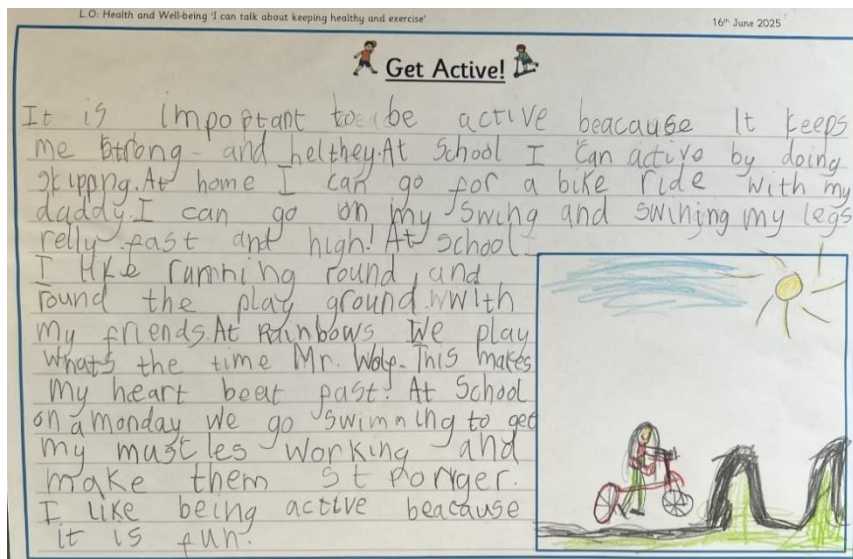 L.O: Health and Well-being 'I can talk about keeping healthy and exercise'
16th June 2025
Get Active!
It is important to be active beacause It keeps
me strong and helthey. At School I can active by doing
skippng. At home I can go for a bike ride with my
daddy. I can go on my Swing and swinjng my legs
relly fast and high! At school
I like running round and
round the play ground. wwith
my friends. At Rainbows We play
Whats the time Mr. Wolf. This makes
my heart beat fast. At School
on a monday we go swimning to get
my muscles working and
make them stronger.
I like being active beacause
it is fun.